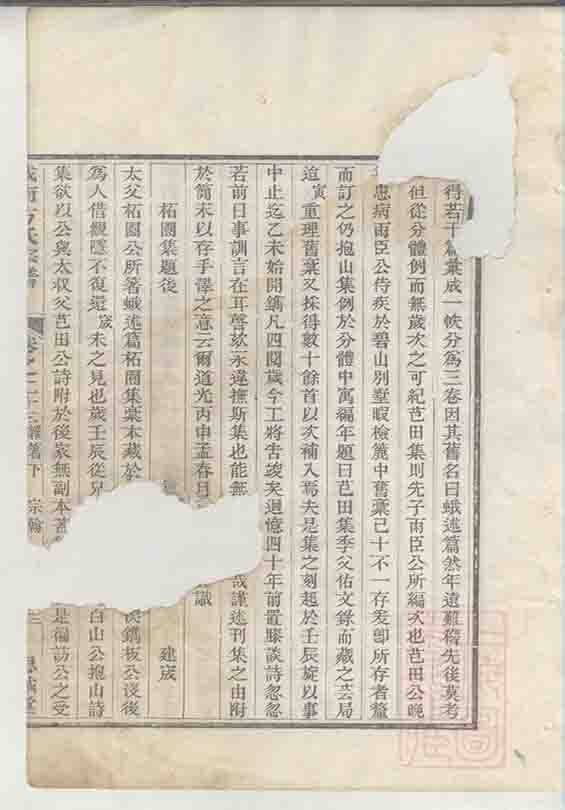 得若干篇彙成一帙分爲三卷因其舊名曰蛾述篇然年遠難稽先後莫考
但從分體例而無歲次之可紀芑田集則先子雨臣公所編次也芑田公晚
患病雨臣公侍疾於碧山別墅暇檢篋中舊稾已十不一存爰卽所存者釐
而訂之仍抱山集例於分體中寓編年題曰芑田集季父佑文錄而藏之芸局
寅重理舊稾又採得數十餘首以次補入焉夫是集之刻起於壬辰旋以事
中止迄乙未始開鐫凡四閱歲今工將告竣矣迴憶四十年前置膝談詩忽忽
若前日事訓言在耳謦欬永違撫斯集也能無 或謹述刊集之由附
於簡末以存手澤之意云爾道光丙申孟春月 識
柘園集題後 建宬
太父柘園公所著蛾述篇柘園集稾本藏於 鐫板公沒後
爲人借觀隱不復還宬未之見也歲壬辰從兄 白山公抱山詩
集欲以公與太叔父芑田公詩附於後家無副本 是徧訪公之受
方氏 卷之二十三 雜著下 宗翰